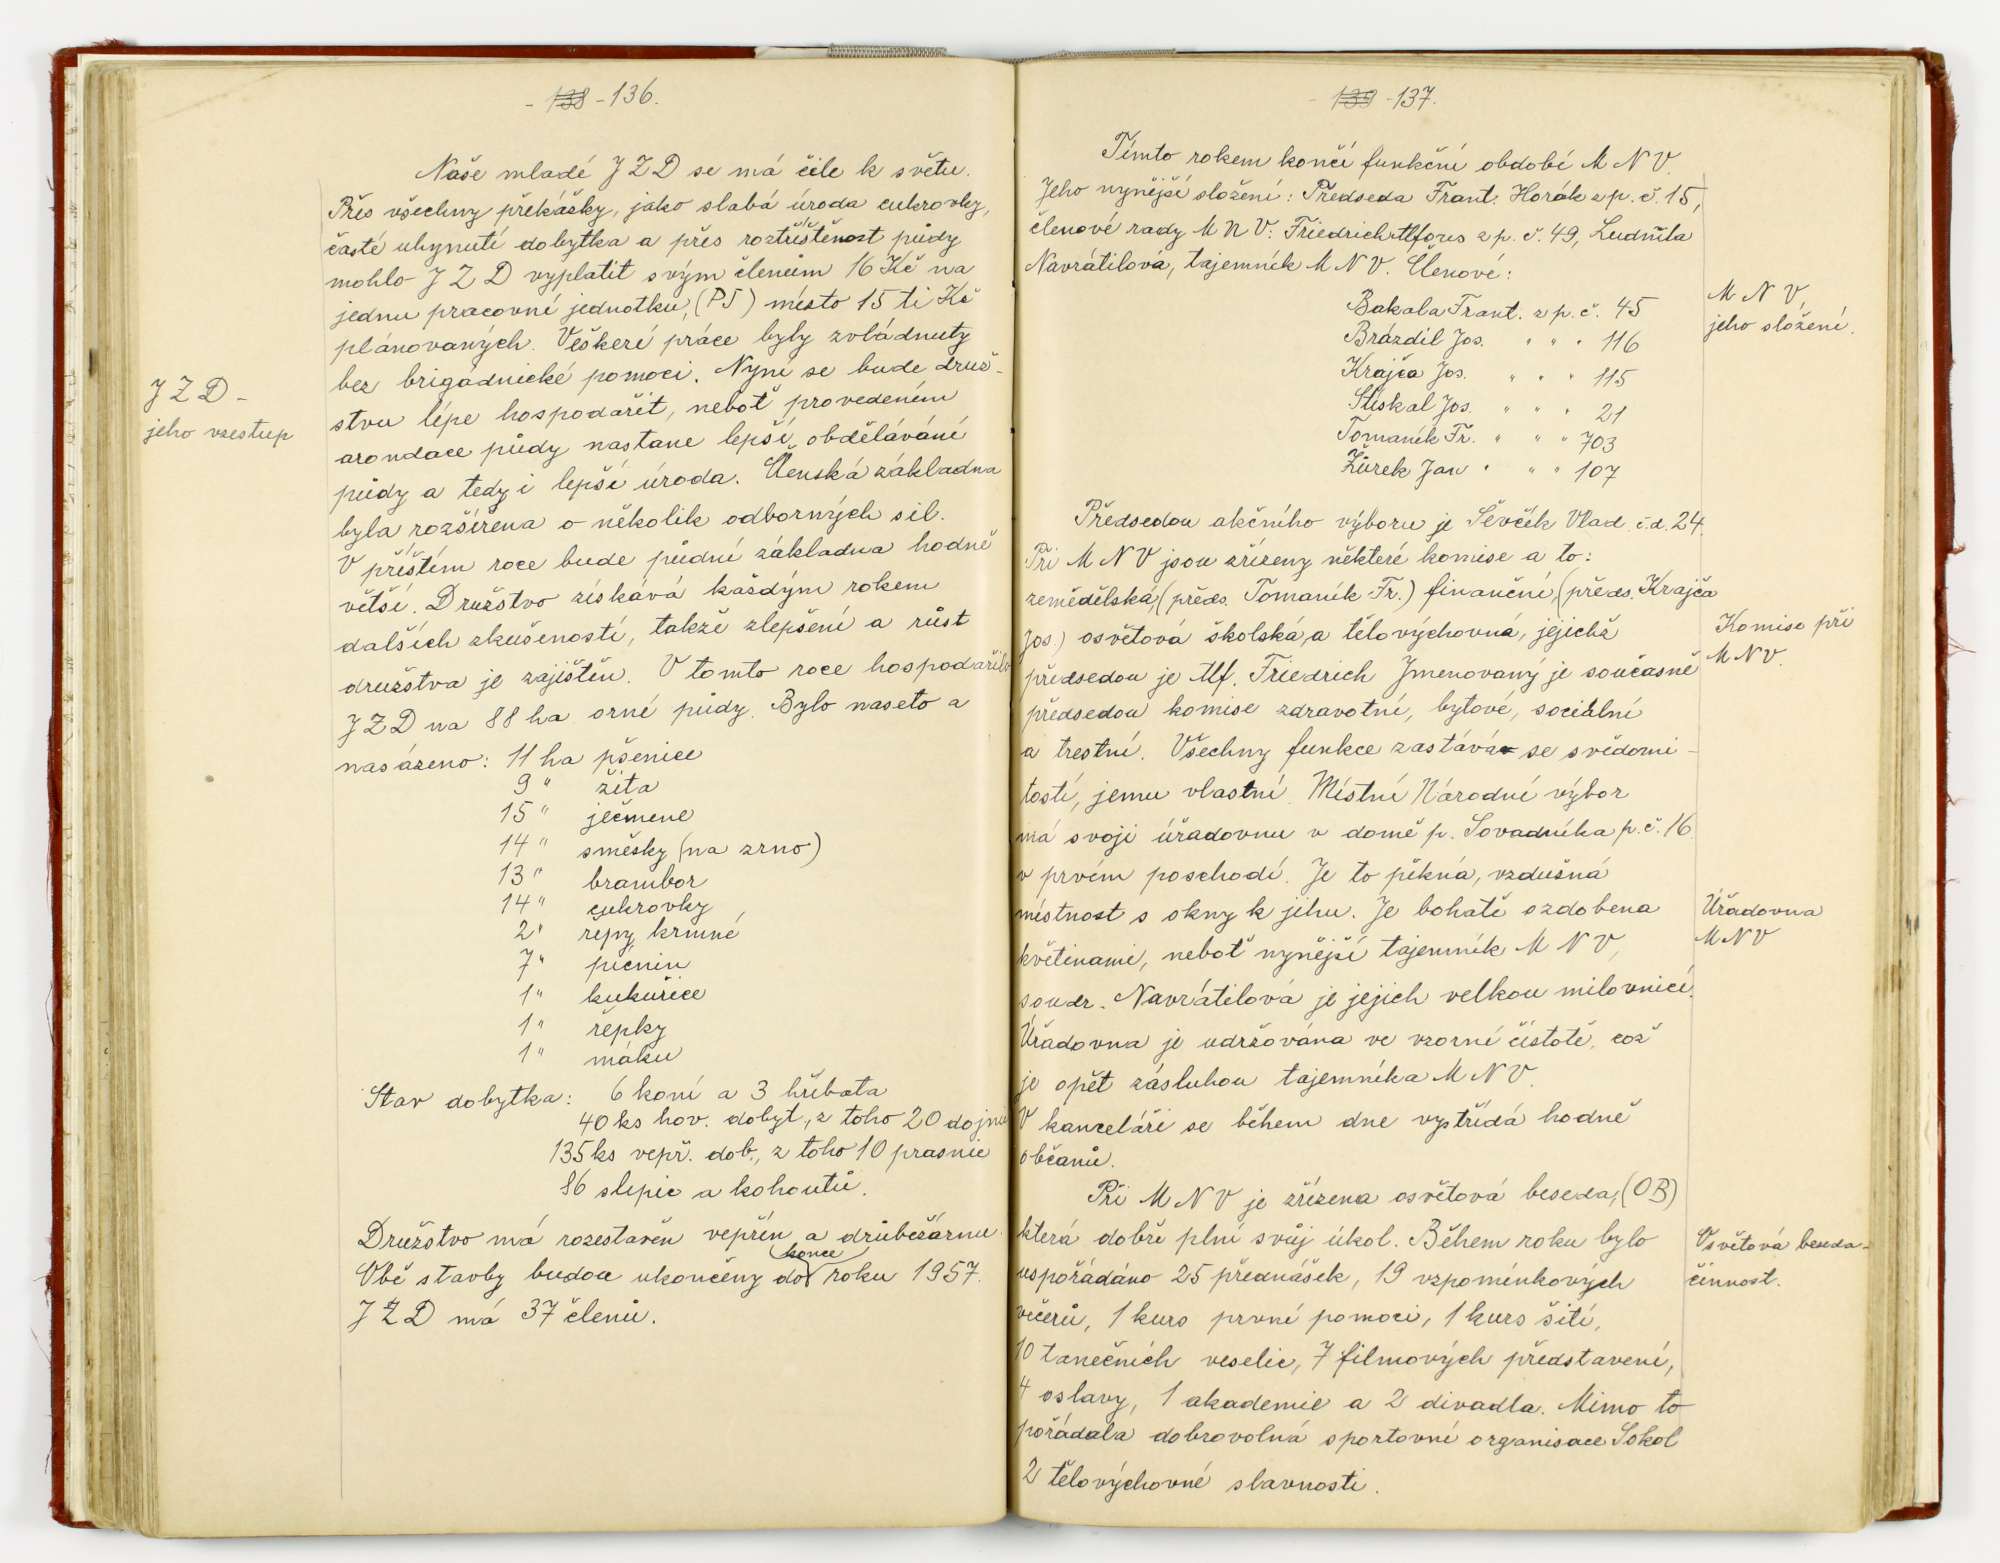 - 138 - 136.
Naše mladé JZD se má čile k světu.
Přes všechny překážky, jako slabá úroda cukrovky,
časté uhynutí dobytka a přes roztříštěnost půdy
mohlo JZD vyplatit svým členům 16 Kč na
jednu pracovní jednotku, (PJ) místo 15 ti Kč
plánovaných. Veškeré práce byly zvládnuty
bez brigádnické pomoci. Nyní se bude druž-
stvu lépe hospodařit, neboť provedením
arondace půdy nastane lepší obdělávání
půdy a tedy i lepší úroda. Členská základna
byla rozšířena o několik odborných sil.
V příštím roce bude půdní základna hodně
větší. Družstvo získává každým rokem
dalších zkušeností, takže zlepšení a růst
družstva je zajištěn. V tomto roce hospodařilo
JZD na 88 ha orné půdy. Bylo naseto a
nasázeno: 11 ha pšenice
9 " žita
15 " ječmene
14 " směsky (na zrno)
13 " brambor
14 " cukrovky
2 " řepy krmné
7 " pícnin
1 " kukuřice
1 " řepky
1 " máku
Stav dobytka: 6 koní a 3 hříbata
40 ks hov. dobyt., z toho 20 dojnic
135 ks vepř. dob., z toho 10 prasnic
86 slepic a kohoutů.
Družstvo má rozestavěn vepřín a drůbežárnu.
konce
Obě stavby budou ukončeny do roku 1957.
JZD má 37 členů.
JZD -
jeho vzestup
- 139 - 137.
Tímto rokem končí funkční období MNV.
Jeho nynější složení: Předseda Frant. Horák z p. č. 15,
členové rady MNV: Friedrich Alfons z p. č. 49, Ludmila
Navrátilová, tajemník MNV. Členové:
Bakala Frant. z p. č. 45
Brázdil Jos. " " " 116
Krajča Jos. " " " 115
Stiskal Jos. " " " 21
Tomaník Fr. " " " 703
Žůrek Jan " " " 107
Předsedou akčního výboru je Ševčík Vlad. č.d. 24.
Při MNV jsou zřízeny některé komise a to:
zemědělská, (předs. Tomaník Fr.) finanční, (předs. Krajča
Jos.) osvětová školská, a tělovýchovná, jejichž
předsedou je Alf. Friedrich Jmenovaný je současně
předsedou komise zdravotní, bytové, sociální
a trestní. Všechny funkce zastává se svědomi-
tostí, jemu vlastní. Místní Národní výbor
má svoji úřadovnu v domě p. Sovadníka p. č. 16
v prvém poschodí. Je to pěkná, vzdušná
místnost s okny k jihu. Je bohatě ozdobena
květinami, neboť nynější tajemník MNV,
soudr. Navrátilová je jejich velkou milovnicí.
Úřadovna je udržována ve vzorné čistotě, což
je opět zásluhou tajemníka MNV.
V kanceláři se během dne vystřídá hodně
občanů.
Při MNV je zřízena osvětová beseda, (OB)
která dobře plní svůj úkol. Během roku bylo
uspořádáno 25 přednášek, 19 vzpomínkových
večerů, 1 kurs první pomoci, 1 kurs šití,
10 tanečních veselic, 7 filmových představení,
4 oslavy, 1 akademie a 2 divadla. Mimo to
pořádala dobrovolná sportovní organisace Sokol
2 tělovýchovné slavnosti.
MNV,
jeho složení.
Komise při
MNV.
Úřadovna
MNV
Osvětová beseda -
činnost.